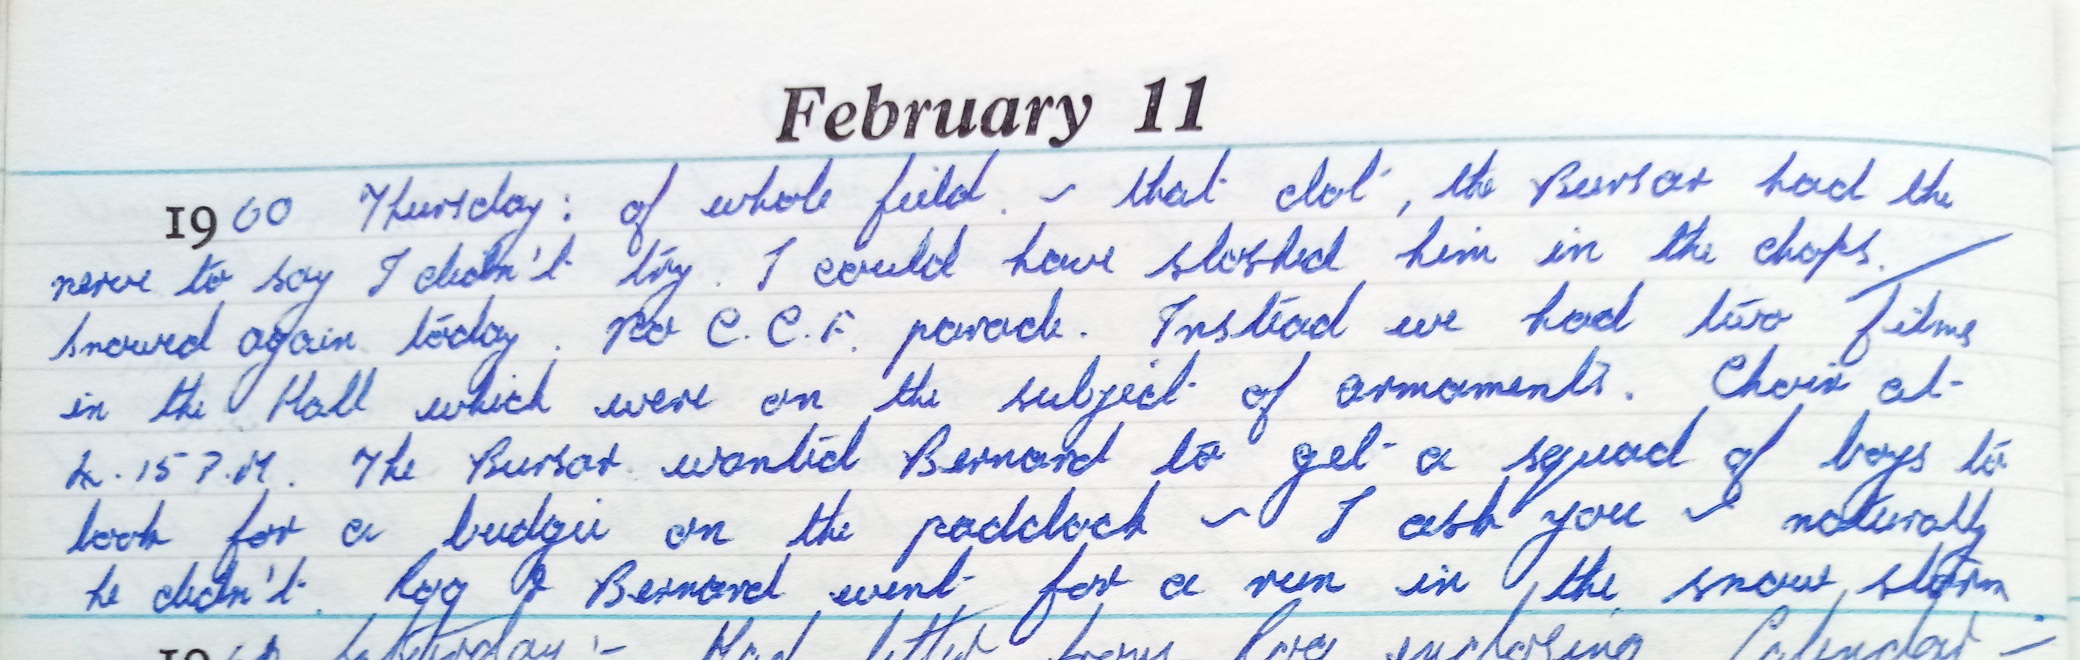 February 11
1960 Thursday: of whole field. ~ that clot, the Bursar had the
nerve to say I didn't try. I could have sloshed him in the chops.
snowed again today. No C.C.F. parade. Instead we had two films
in the Hall which were on the subject of armaments. Choir at
2.15 P.M. The Bursar wanted Bernard to get a squad of boys to
look for a budgie on the paddock ~ I ask you ~ naturally
he didn't. Rog & Bernard went for a run in the snow storm
19 Saturday :- Had letter from Rog enclosing Calendar -